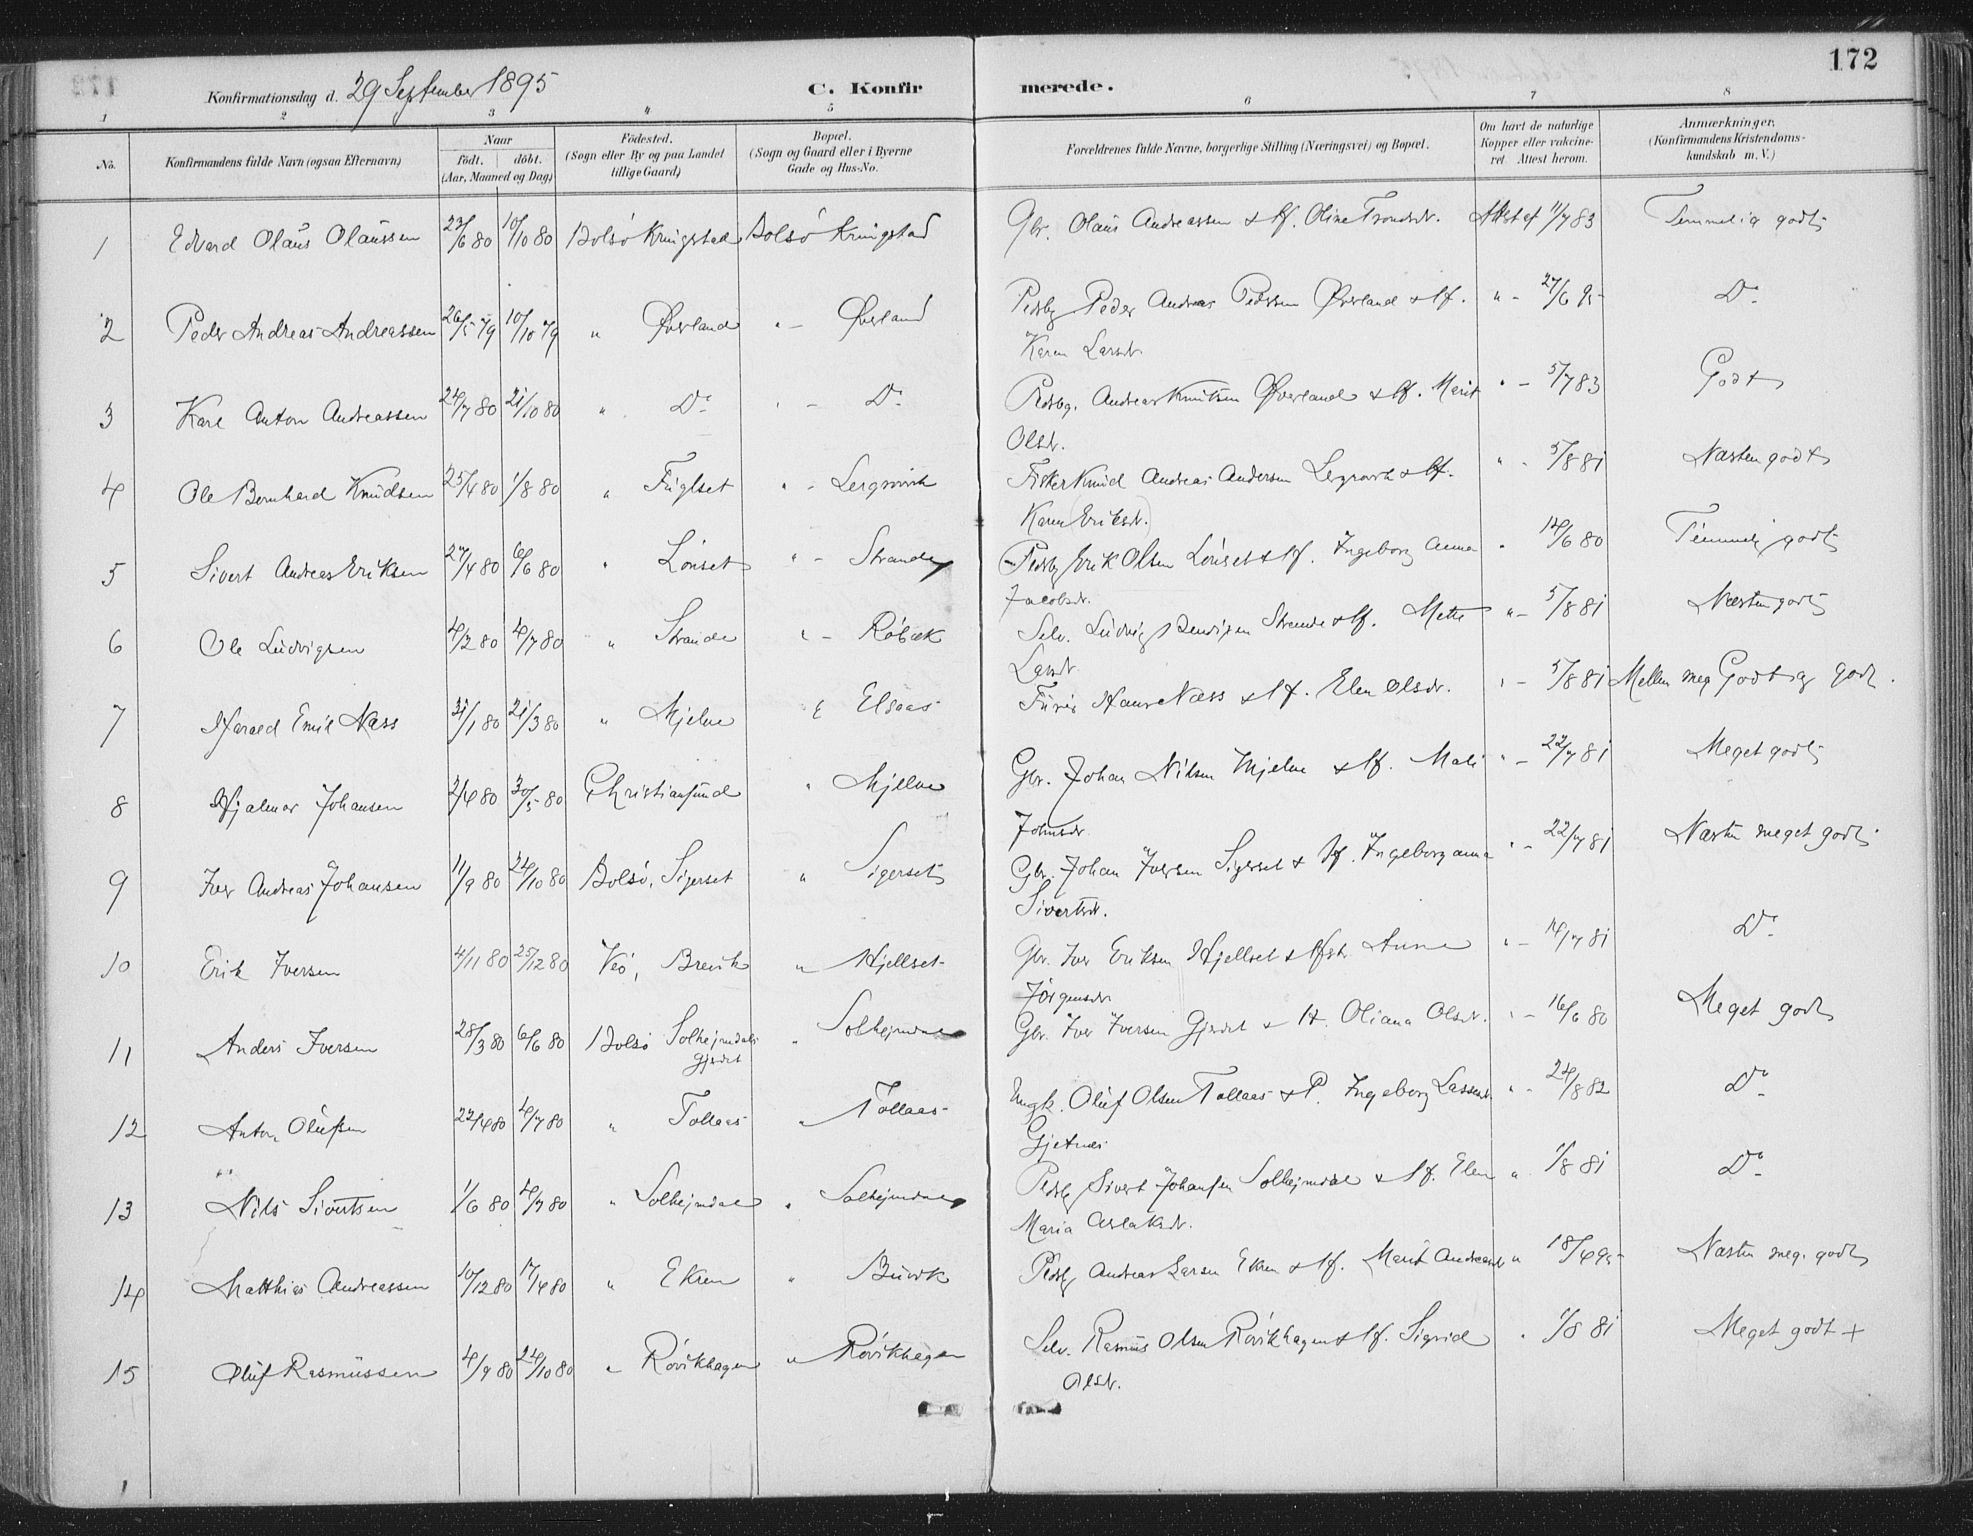 172
Konfirmationsdag d. 29 September 1895 C. Konfirmerede.
1 2 3 4 5 6 7 8
No. Konfirmandens fulde Navn (ogsaa Efternavn) Naar födt. döbt. (Aar, Maaned og Dag) Födested. (Sogn eller By og paa Landet tillige Gaard) Bopæl. (Sogn og Gaard eller i Byerne Gade og Hus-No. Forældrenes fulde Navne, borgerlige Stilling (Næringsvei) og Bopæl. Om havt de naturlige Kopper eller vakcineret. Attest herom. Anmærkninger. (Konfirmandens Kristendomskundskab m. V.)
1 Edvard Olaus Olaussen 23/6 80 10/10 80 Bolsö Kringstad Bolsö Kringstad Gbr. Olaus Andreassen & Hf. Oline Trondsdr. Attst af 11/7 83 Temmelig godt
2 Peder Andreas Andreassen 26/5 79 10/10 79 " Øverland " - Øverland Pedsbg Peder Andreas Pedersen Øverland & Hf. " - 27/6 95 Do
Karen Larsdr.
3 Karl Anton Andreassen 24/7 80 21/10 80 " Do " - Do Pedsbg. Andreas Knutsen Øverland & Hf. Marit " - 5/7 83 Godt
Olsdr.
4 Ole Bernhard Knudsen 25/4 80 1/8 80 " Fuglset " - Lergrovik Fisker Knud Andreas Andersen Lergrovik & Hf. " - 5/8 81 Næsten godt
Karen (Eriksdr.)
5 Sivert Andreas Eriksen 27/4 80 6/6 80 " Lönset " - Strande Pedsbg Erik Olsen Lönset & Hf. Ingeborg Anna " 14/6 80 Temmelig godt
Jacobsdr.
6 Ole Ludvigsen 4/2 80 4/7 80 " Strande " - Röbæk Selv. Ludvig Bendixen Strande & Hf. Mette " - 5/8 81 Næsten godt
Larsdr.
7 Harald Emil Næss 31/1 80 21/3 80 " Mjelve " Elsaas Hans Næss & Hf. Elen Olsdr. " - 5/8 81 Mellem meg Godt og godt.
8 Hjalmar Johansen 2/4 80 30/5 80 Christiansund " Mjelve Gbr. Johan Nilsen Mjelve & Hf. Mali " - 22/7 81 Meget godt
Johnsdr.
9 Iver Andreas Johansen 11/9 80 24/10 80 Bolsö, Sigerset " Sigerset Gbr. Johan Iversen Sigerset & Hf. Ingeborg Anna " - 22/7 81 Næsten meget godt
Sivertsdr.
10 Erik Iversen 4/11 80 25/12 80 Veö, Brevik " Hjellset Gbr. Iver Eriksen Hjellset & Hustr. Anne " - 14/7 81 Do
Jörgensdr.
11 Anders Iversen 28/3 80 6/6 80 Bolsö Solhejmdals " Solhejmdal Gbr. Iver Iversen Gjerdet & H. Oliana Olsdr. " - 16/6 80 Meget godt
Gjerdet
12 Anton Olufsen 22/4 80 4/7 80 " Tollaas " Tollaas Ungk. Oluf Olsen Tollaas & P. Ingeborg Lassesdr. " - 24/8 82 Do
Gjetnæs
13 Nils Sivertsen 1/6 80 4/7 80 " Solhejmdal " Solhejmdal Pedsbg Sivert Johansen Solhejmdal & Hf. Elen " 1/8 81 Do
Maria Aslaksdr.
14 Matthias Andreassen 10/12 80 17/4 80 " Ekren " Burvik Pedsbg Andreas Larsen Ekren & Hf. Marit Andreasdr " 18/4 95 Næsten meg. godt
15 Oluf Rasmussen 4/9 80 24/10 80 " Rövikhagen " Rövikhagen Selv. Rasmus Olsen Rövikhagen & Hf. Sigrid " 1/8 81 Meget godt +
Olsdr.